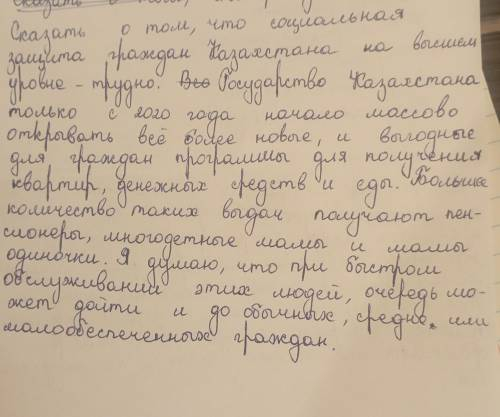 Сказать о том, что социальная
защита граждан Казахстана на высшем
уровне - трудно. Всо Государство Казахстана
только с 2020 года начало массово
открывать всё более новые, и выгодные
для граждан программы для получения
квартир, денежных средств и еды. Большее
количество таких выдач получают пен-
сионеры, многодетные мамы и мамы
одиночки. Я думаю, что при быстром
обслуживании этих людей, очередь мо-
жет дойти и до обычных, средне, или
малообеспеченных граждан.